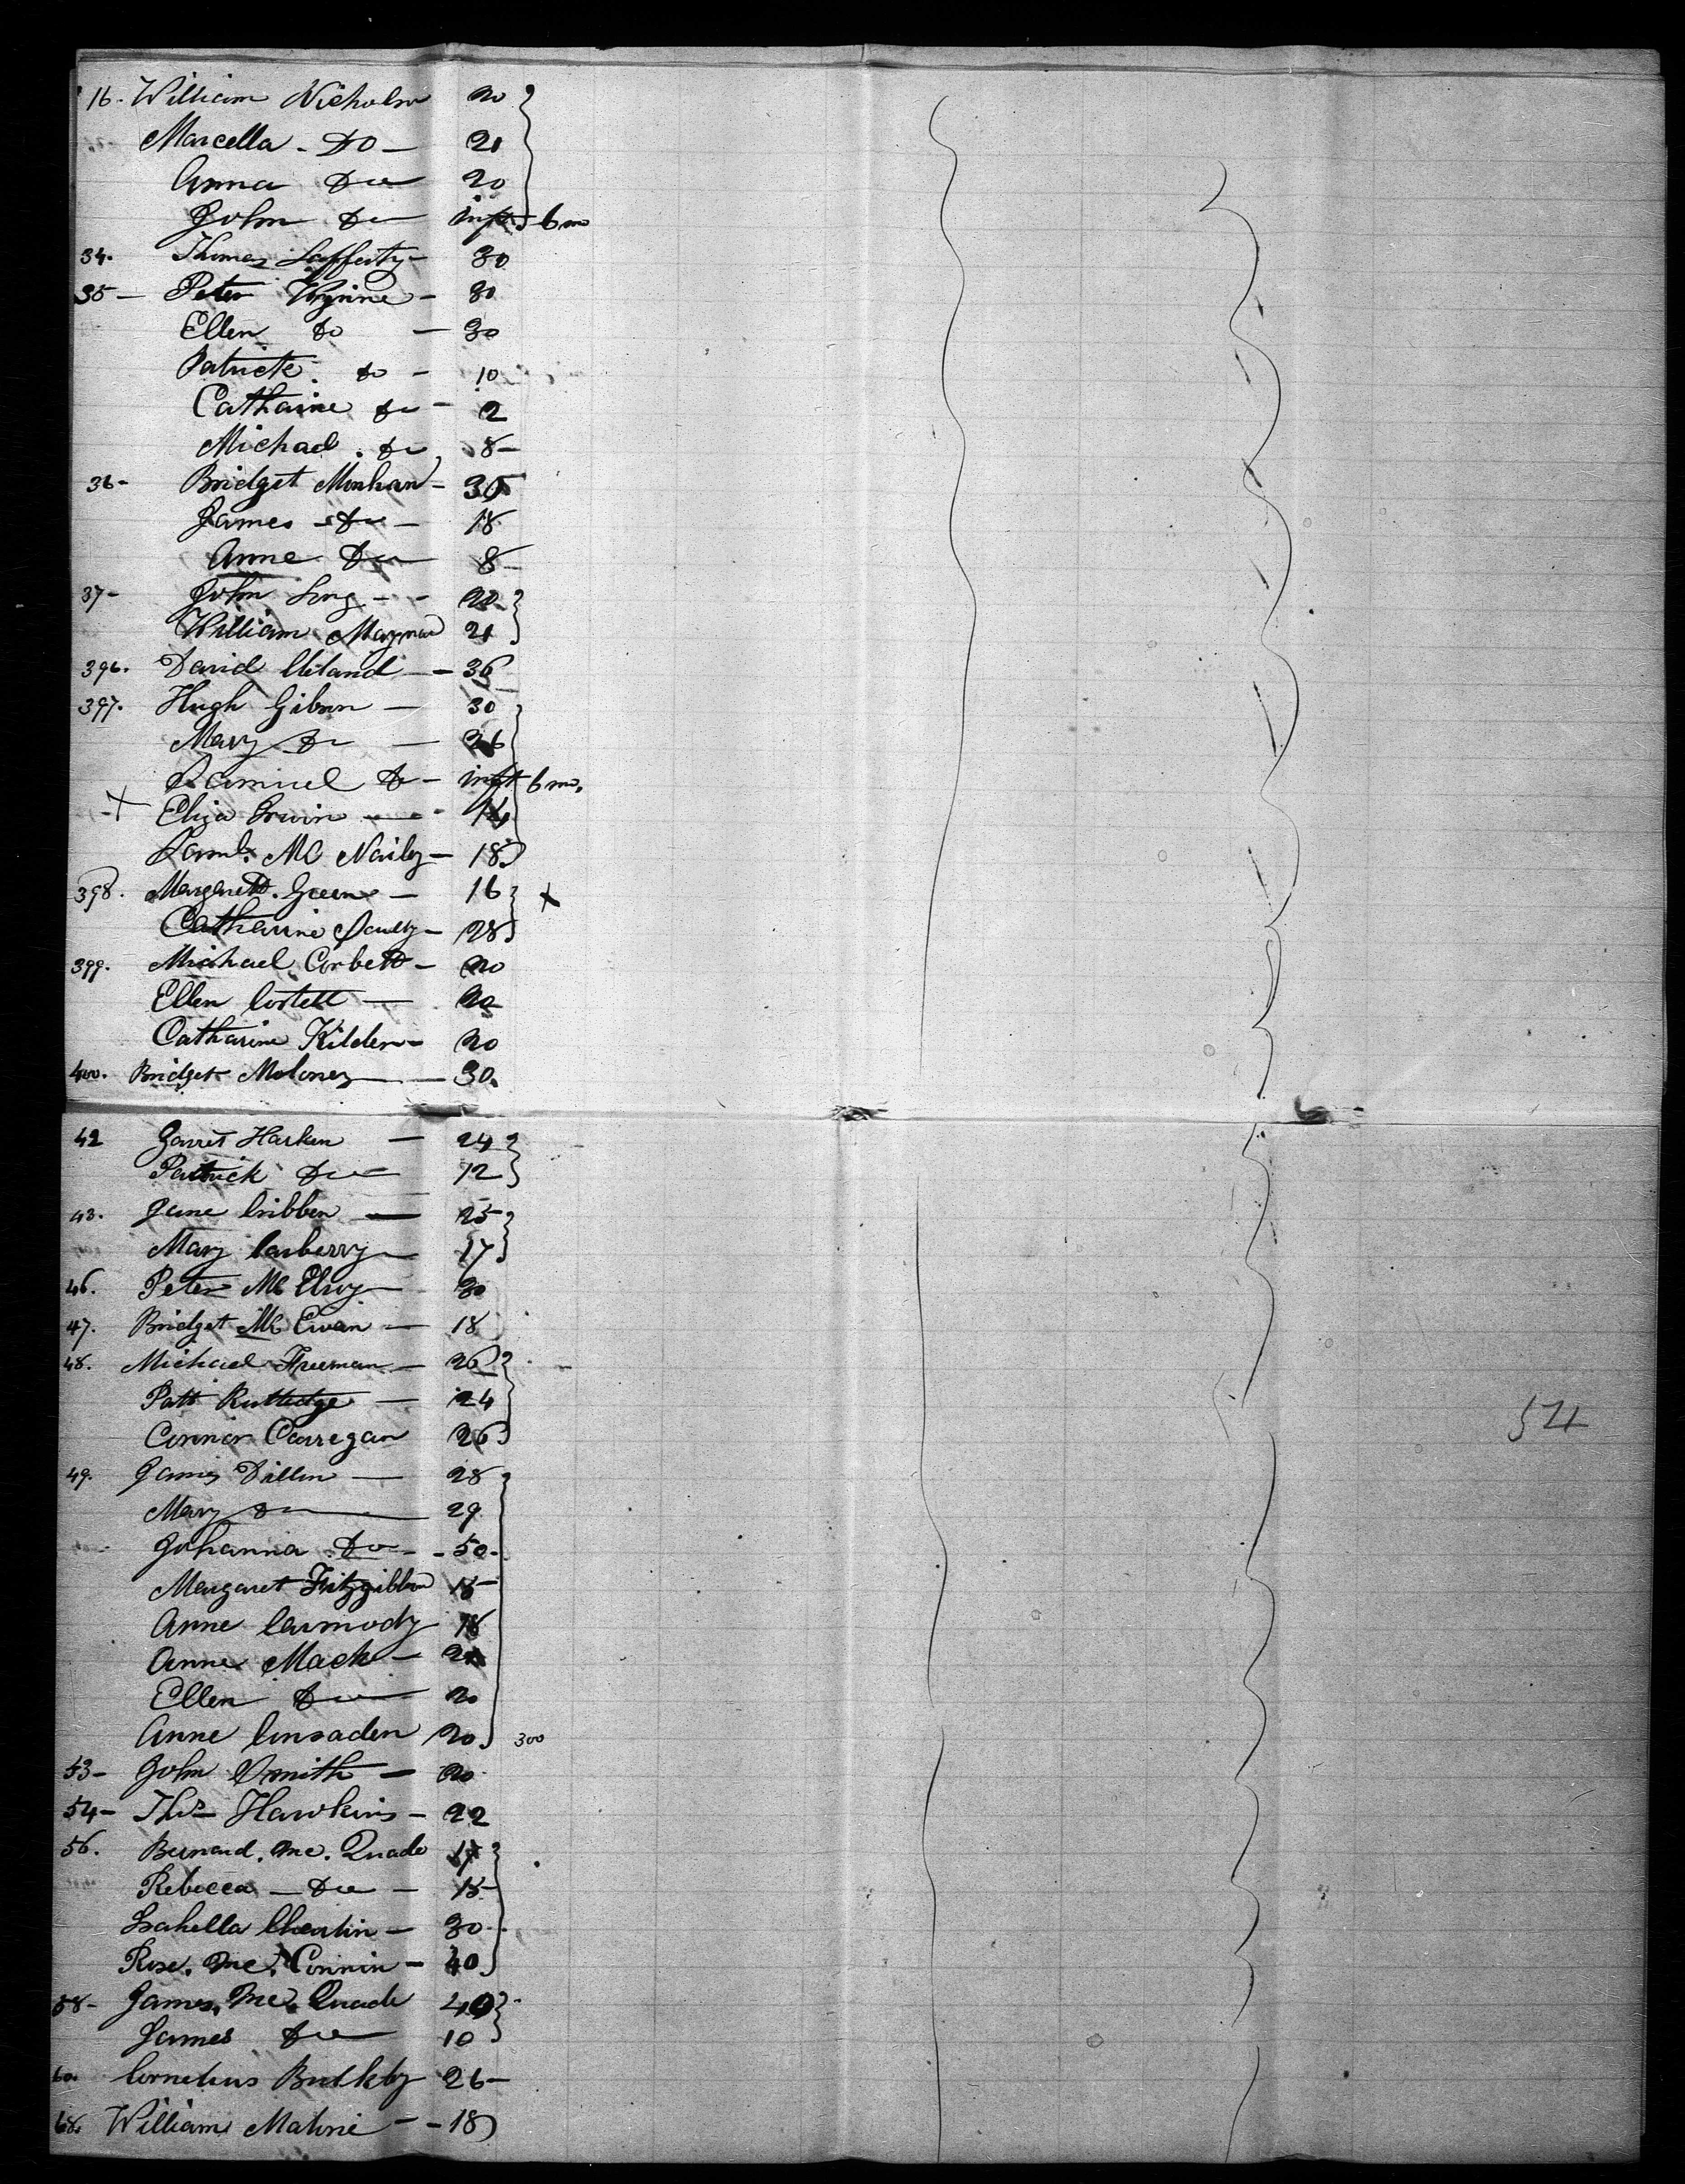 16. William Nicholson 20
Marcella - Do - 21
Anna Do 20
John Do infт 6 mo
34. Thomas Lafferty - 30
35 - Peter Wynne - 30
Ellen Do - 30
Patrick Do - 10
Catharine Do - 2
Michael Do 8 -
36 - Bridget Monhan - 35
James - Do - 18
Anne Do 8 -
37 - John Long - - 20
William Maynard 21
396. David Cleland - 36
397. Hugh Gibson - 30
Mary Do - 26
Samuel Do - inft 6 mo.
-+ Eliza Irwin - 14
Saml. Mc Nailey - 18
398. Margarett Green - 16 x
Catharine Scully - 28
399. Michael Corbett - 20
Ellen Costell - 20
Catharine Kilden - 20
400. Bridget Moloney - 30.
42 Garret Harken - 24
Patrick Do 12
43. Jane Cribben - 25
Mary Carberry - 17
46. Peter Mc Elroy - 30
47. Bridget Mc Ewan - 18
48. Michael Freeman - 26
Patt Ruttledge - 24
Connor Carregan 26
49. James Dillon - 28
Mary Do 29
Johanna Do - 50 -
Margaret Fitzgibbon 18 -
Anne Carmody 18
Anne Mack - 21
Ellen Do 20
Anne Consaden 20 300
53 - John Smith - 20
54 - Thos Hawkins - 22
56. Bernard. Mc. Quade 17
Rebecca - Do - 18 -
Isabella Chentin - 30 -
Rose. Mc. Connin - 40
58 - James. Mc. Quade 40
James Do 10
60. Cornelius Bulkley 26 -
68. William Malone - - 18